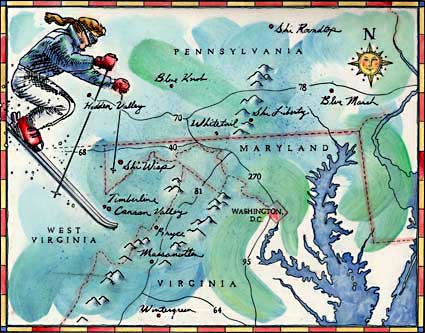 Ski Roundtop
N
PENNSYLVANIA
Blue Knob
78
Hidden Valley
Blue Marsh
70
Ski Liberty
Whitetail
68
40
MARYLAND
Ski Wisp
270
81
Timberline
Canaan Valley
WASHINGTON,
D.C.
WEST
VIRGINIA
Bryce
Massanutten
95
VIRGINIA
Wintergreen
64